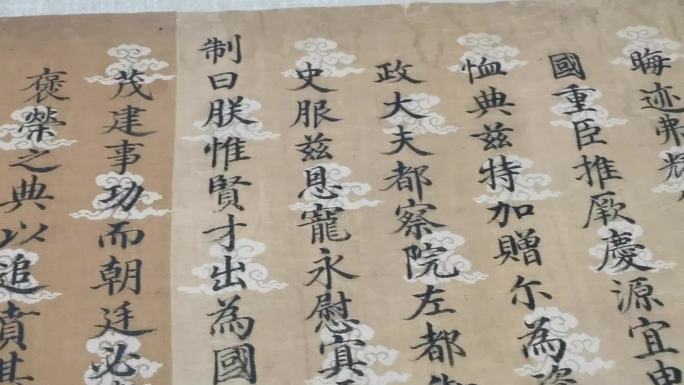 晦迹弗耀
國重臣推厥慶源宜申
恤典兹特加贈尔為資
政大夫都察院左都御
史服兹恩寵永慰冥
制曰朕惟賢才出為國
茂建事功而朝廷必
褒榮之典以追賁其